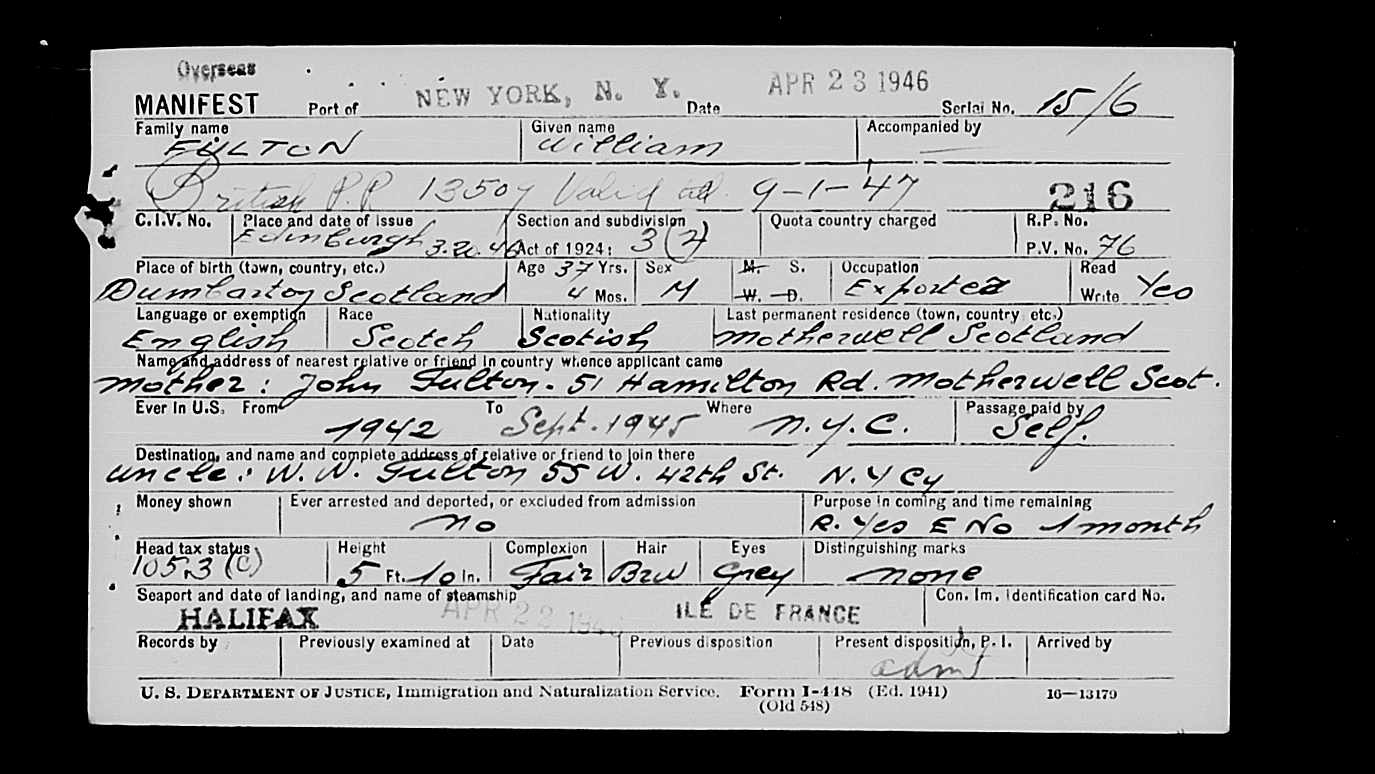 Overseas
MANIFEST Port of NEW YORK, N. Y. Date APR 23 1946 Serial No. 15/6
Family name Given name Accompanied by
FULTON William —
British P.P. 13507 Valid till 9-1-47 216
C.I.V. No. Place and date of issue Section and subdivision Quota country charged R.P. No.
Edinburgh 3.20.46 Act of 1924: 3(2) P.V. No. 76
Place of birth (town, country, etc.) Age 37 Yrs. Sex M. S. Occupation Read
Dumbarton Scotland 4 Mos. M W. D. Exported Write Yes
Language or exemption Race Nationality Last permanent residence (town, country etc.)
English Scotch Scotish Motherwell Scotland
Name and address of nearest relative or friend in country whence applicant came
Mother: John Fulton - 51 Hamilton Rd. Motherwell Scot.
Ever in U.S. From To Where Passage paid by
1942 Sept. 1945 N.Y.C. Self.
Destination, and name and complete address of relative or friend to join there
Uncle: W. W. Fulton 55 W. 42th St. N.Y Cy
Money shown Ever arrested and deported, or excluded from admission Purpose in coming and time remaining
No R. Yes E No 1 month
Head tax status Height Complexion Hair Eyes Distinguishing marks
105.3 (C) 5 Ft. 10 In. Fair Brw Grey none
Seaport and date of landing, and name of steamship Con. Im. Identification card No.
HALIFAX APR 22 1946 ILE DE FRANCE
Records by Previously examined at Date Previous disposition Present disposition, P. I. Arrived by
admt
U. S. DEPARTMENT OF JUSTICE, Immigration and Naturalization Service. Form I-448 (Ed. 1941) 16—13179
(Old 548)